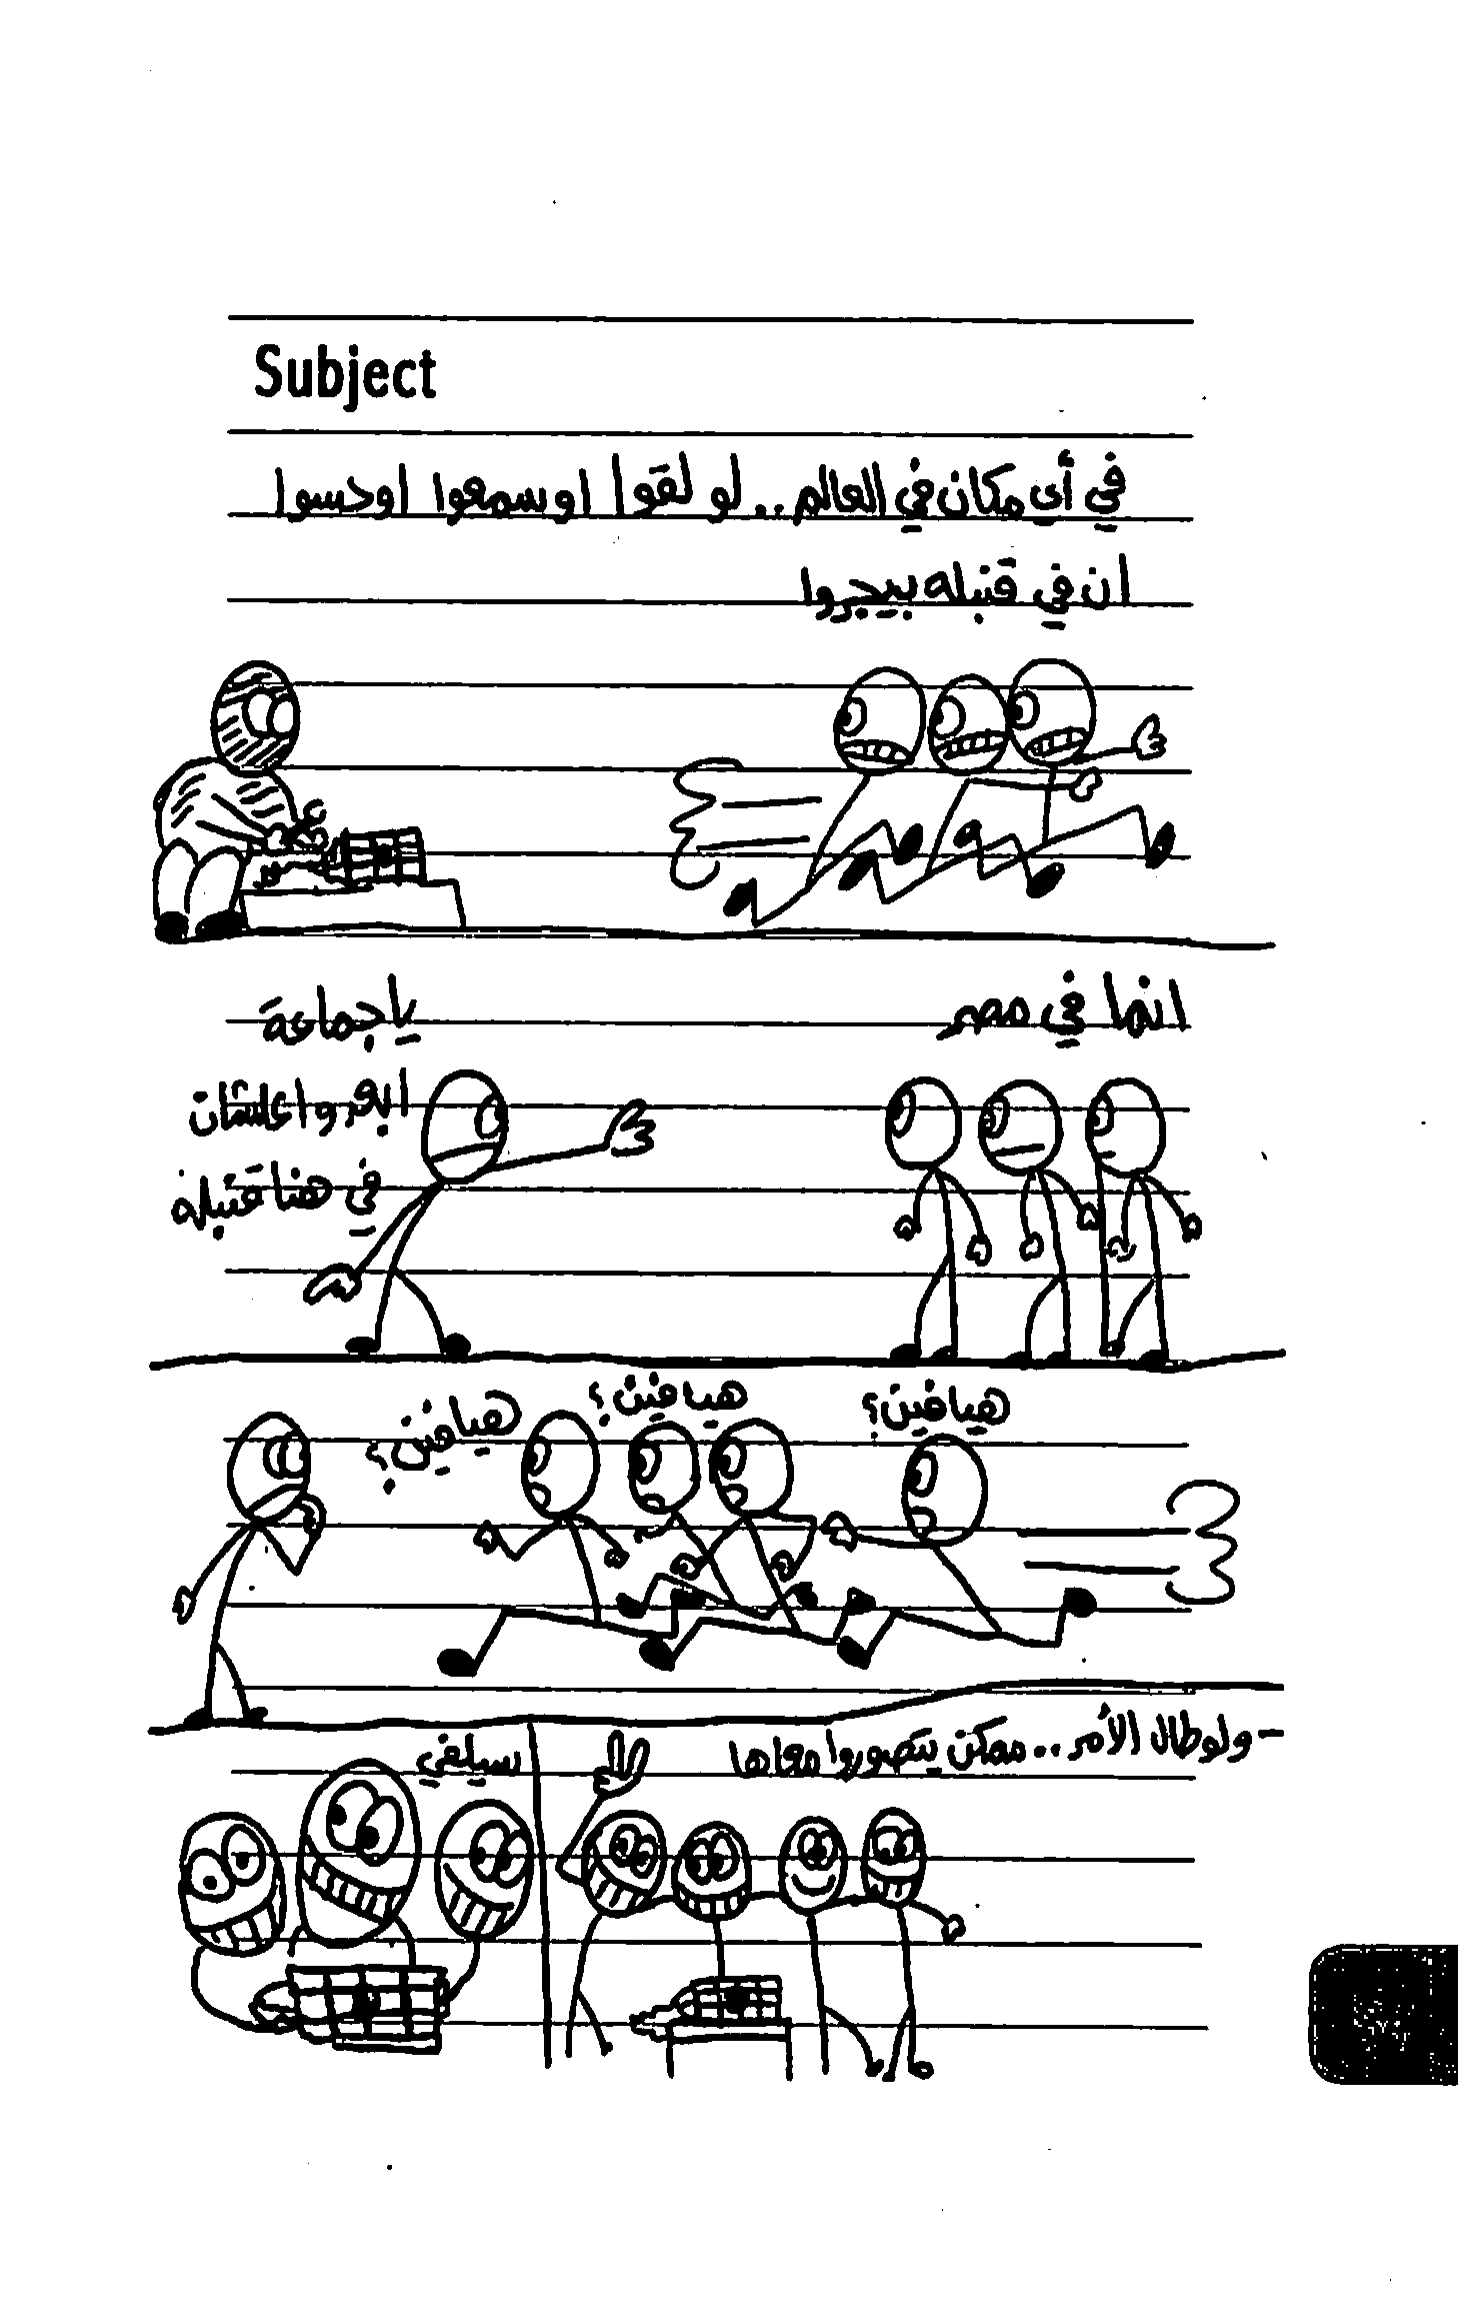 Subject
في أي مكان في العالم.. لو لقوا او سمعوا او حسوا
ان في قنبله بيجروا
انما في مصر
ياجماعة
اجروا علشان
في هنا قنبلة
هيا فين؟
هيا فين؟
هيا فين؟
- ولو طال الأمر.. ممكن يتصوروا معاها
سيلفي